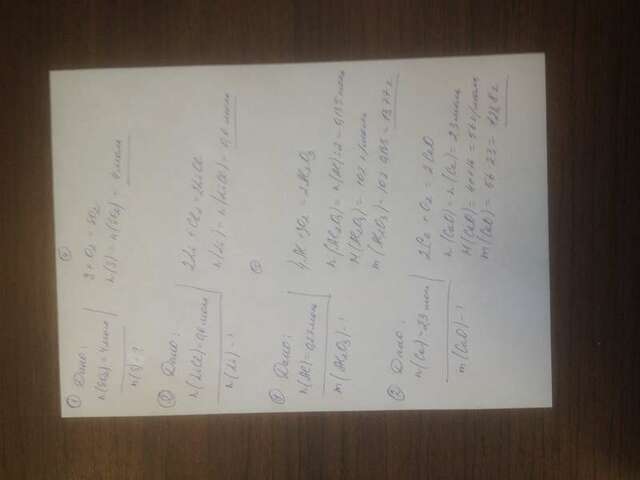 ① Дано:
n(SO₂)=4моль
n(S)-?
S + O₂ = SO₂
n(S) = n(SO₂) = 4моль
② Дано:
n(LiCl)=0,6моль
n(Li)-?
2Li + Cl₂ = 2LiCl
n(Li) = n(LiCl) = 0,6 моль
③ Дано:
n(Al)=0,27моль
m(Al₂O₃)-?
4Al + 3O₂ = 2Al₂O₃
n(Al₂O₃) = n(Al):2 = 0,135 моль
M(Al₂O₃) = 102 г/моль
m(Al₂O₃) = 102·0,135 = 13,77 г
Дано:
n(Ca)=23 моль
m(CaO)-?
2Ca + O₂ = 2CaO
n(CaO) = n(Ca) = 23 моль
M(CaO) = 40+16 = 56 г/моль
m(CaO) = 56·23 = 1288 г